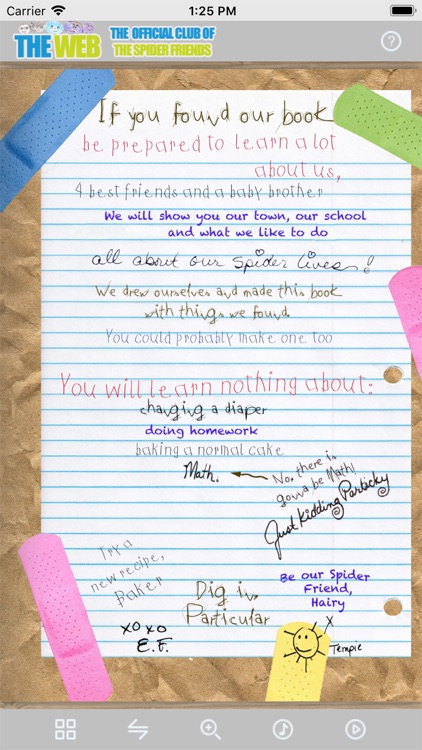 Carrier 1:25 PM
THE WEB THE OFFICIAL CLUB OF
THE SPIDER FRIENDS
?
If you found our book
be prepared to learn a lot
about us,
4 best friends and a baby brother
We will show you our town, our school
and what we like to do
all about our spider lives!
We drew ourselves and made this book
with things we found.
You could probably make one too
You will learn nothing about:
changing a diaper
doing homework
baking a normal cake
Math.
No, there is
gonna be Math!
Just Kidding Particky
Try a
new recipe,
Baker
Dig in.
Particular
Be our Spider
Friend,
Hairy
XOXO
E.F.
X
Tempie